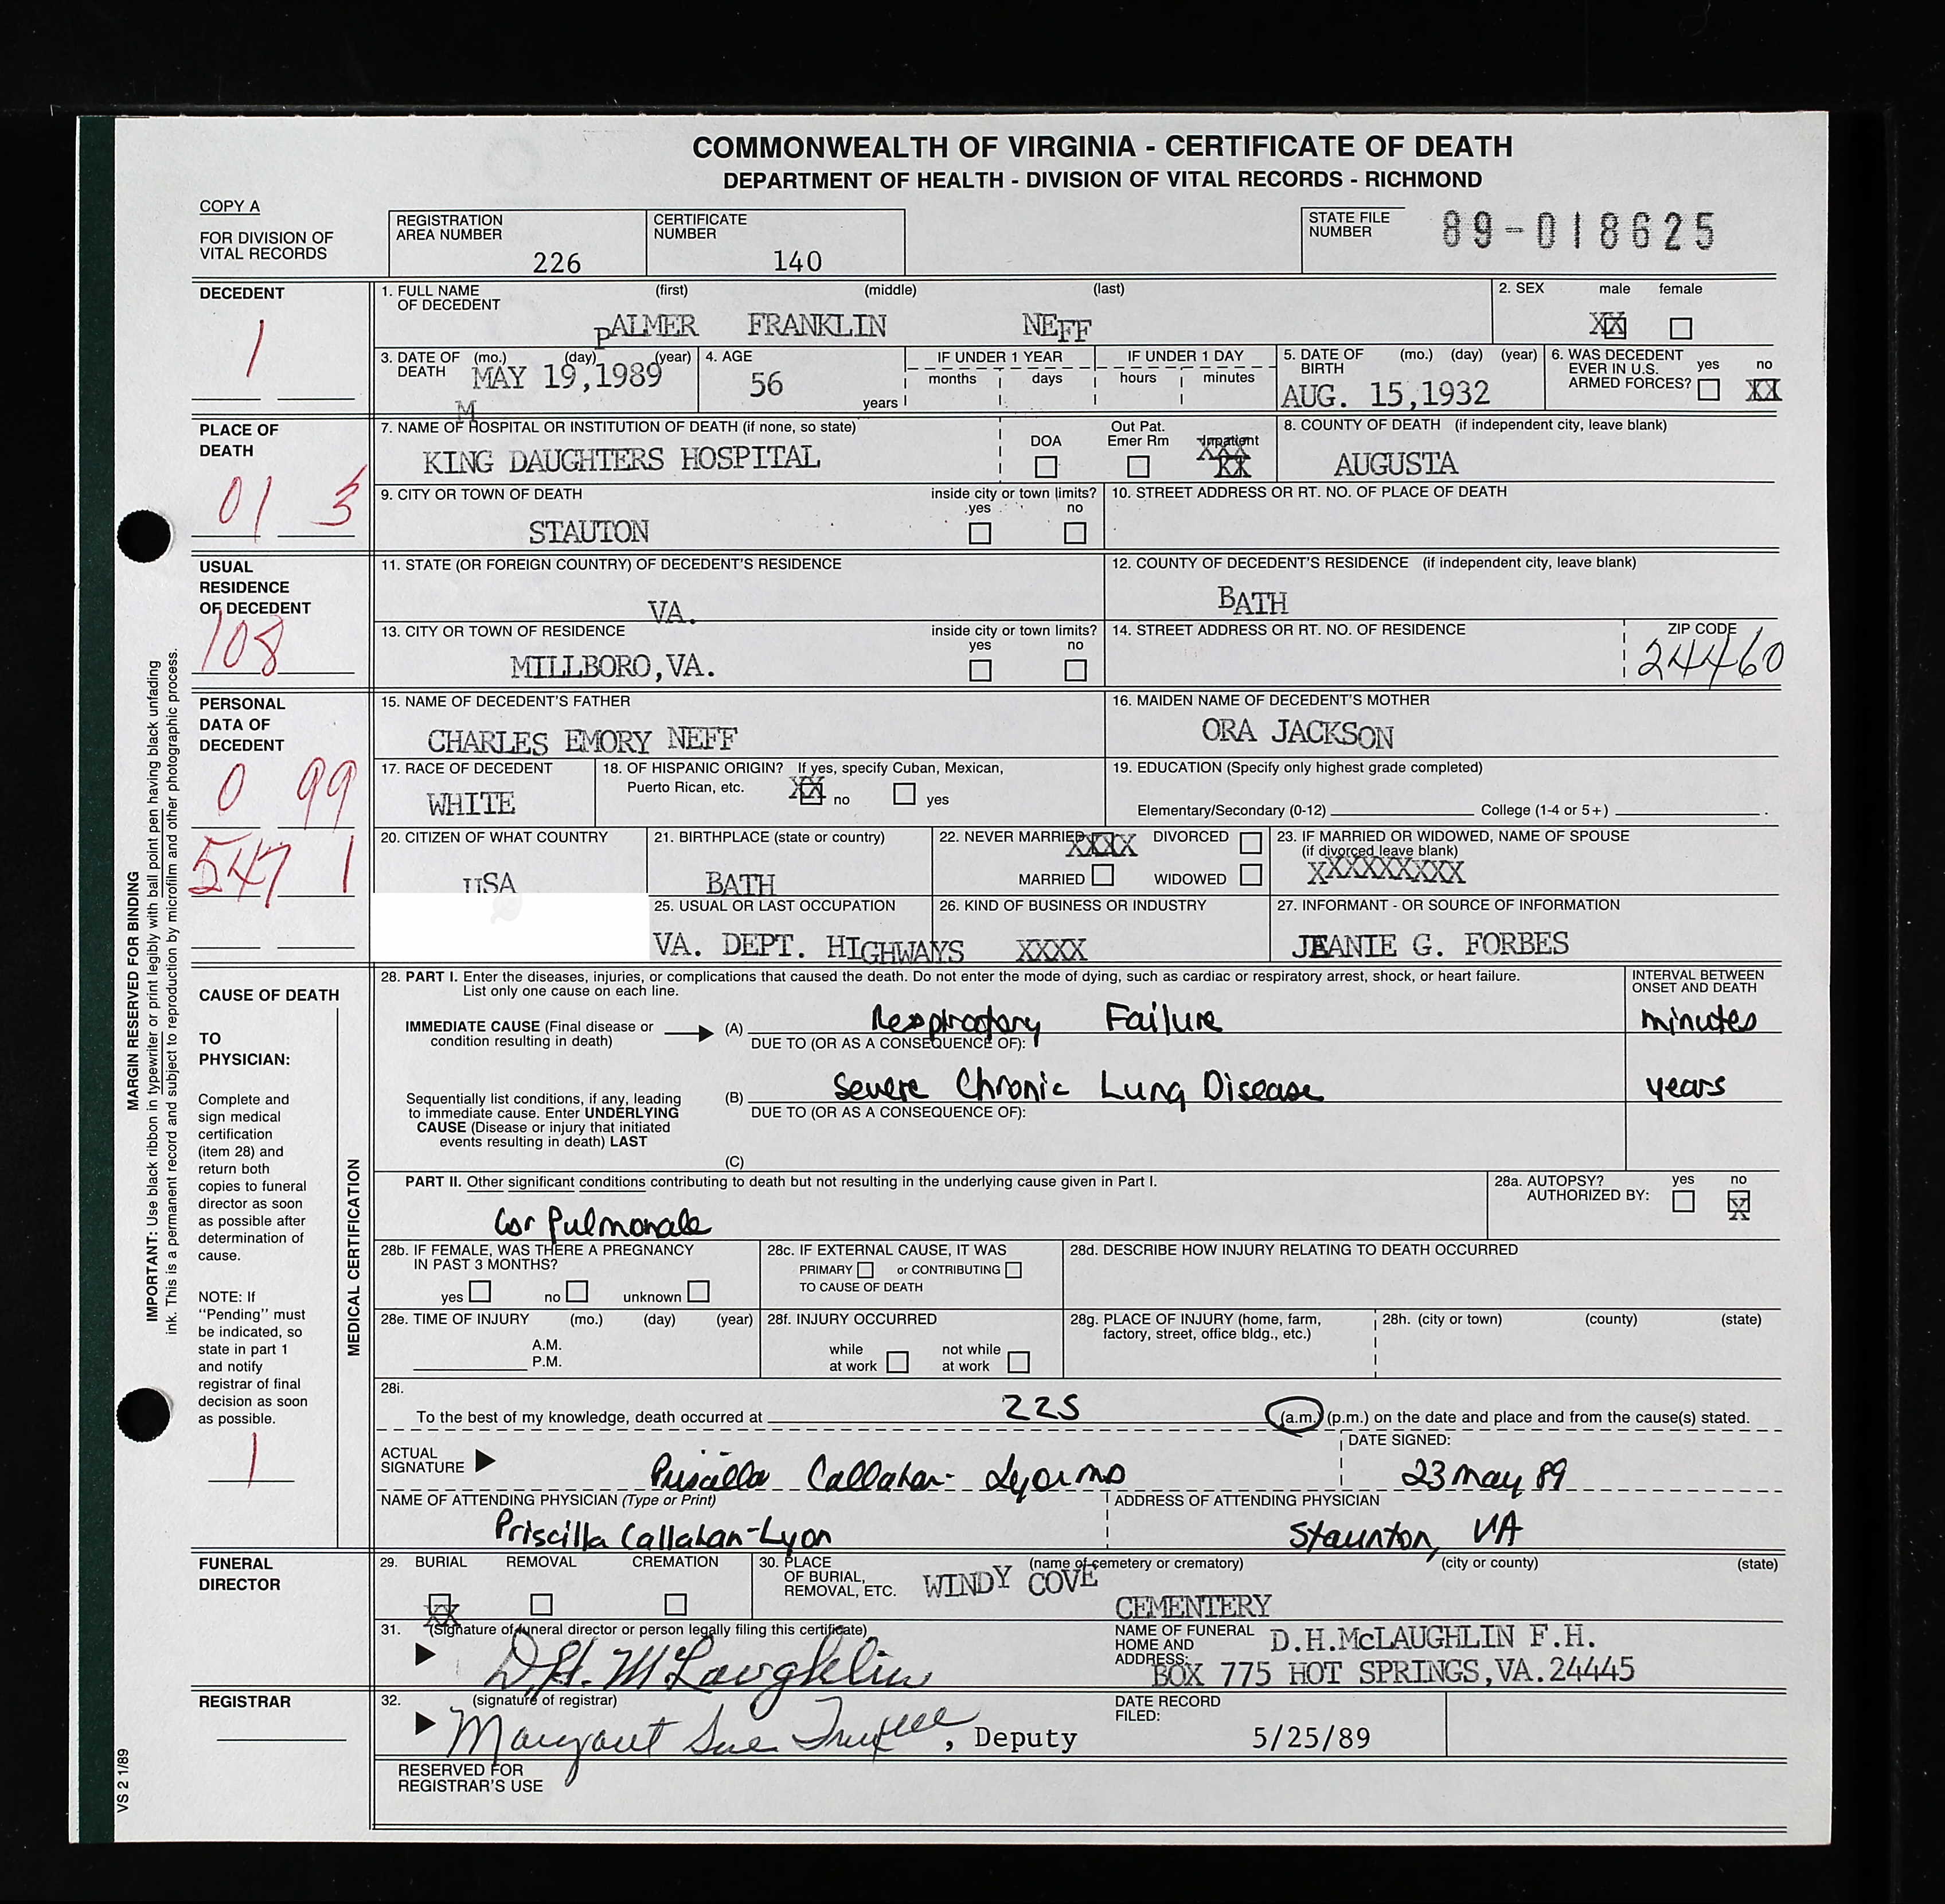 COMMONWEALTH OF VIRGINIA - CERTIFICATE OF DEATH
DEPARTMENT OF HEALTH - DIVISION OF VITAL RECORDS - RICHMOND
COPY A
FOR DIVISION OF
VITAL RECORDS
REGISTRATION
AREA NUMBER
226
CERTIFICATE
NUMBER
140
STATE FILE
NUMBER
89-018625
DECEDENT
1
1. FULL NAME
OF DECEDENT
(first) (middle) (last)
PALMER FRANKLIN NEFF
2. SEX male female
XX
3. DATE OF DEATH (mo.) (day) (year)
MAY 19,1989
M
4. AGE
56
years
IF UNDER 1 YEAR
months days
IF UNDER 1 DAY
hours minutes
5. DATE OF BIRTH (mo.) (day) (year)
AUG. 15,1932
6. WAS DECEDENT
EVER IN U.S.
ARMED FORCES?
yes no
XX
PLACE OF
DEATH
01 3
7. NAME OF HOSPITAL OR INSTITUTION OF DEATH (if none, so state)
KING DAUGHTERS HOSPITAL
DOA
Out Pat.
Emer Rm
Inpatient
XXX
XX
8. COUNTY OF DEATH (if independent city, leave blank)
AUGUSTA
9. CITY OR TOWN OF DEATH
STAUTON
inside city or town limits?
yes no
10. STREET ADDRESS OR RT. NO. OF PLACE OF DEATH
USUAL
RESIDENCE
OF DECEDENT
108
11. STATE (OR FOREIGN COUNTRY) OF DECEDENT'S RESIDENCE
VA.
12. COUNTY OF DECEDENT'S RESIDENCE (if independent city, leave blank)
BATH
13. CITY OR TOWN OF RESIDENCE
MILLBORO,VA.
inside city or town limits?
yes no
14. STREET ADDRESS OR RT. NO. OF RESIDENCE
ZIP CODE
24460
PERSONAL
DATA OF
DECEDENT
0 99
547 1
15. NAME OF DECEDENT'S FATHER
CHARLES EMORY NEFF
16. MAIDEN NAME OF DECEDENT'S MOTHER
ORA JACKSON
17. RACE OF DECEDENT
WHITE
18. OF HISPANIC ORIGIN? If yes, specify Cuban, Mexican,
Puerto Rican, etc. XX no yes
19. EDUCATION (Specify only highest grade completed)
Elementary/Secondary (0-12) College (1-4 or 5+) .
20. CITIZEN OF WHAT COUNTRY
USA
21. BIRTHPLACE (state or country)
BATH
22. NEVER MARRIED XXXX DIVORCED
MARRIED WIDOWED
23. IF MARRIED OR WIDOWED, NAME OF SPOUSE
(if divorced leave blank)
XXXXXXXXX
25. USUAL OR LAST OCCUPATION
VA. DEPT. HIGHWAYS
26. KIND OF BUSINESS OR INDUSTRY
XXXX
27. INFORMANT - OR SOURCE OF INFORMATION
JEANIE G. FORBES
CAUSE OF DEATH
TO
PHYSICIAN:
Complete and
sign medical
certification
(item 28) and
return both
copies to funeral
director as soon
as possible after
determination of
cause.
NOTE: If
"Pending" must
be indicated, so
state in part 1
and notify
registrar of final
decision as soon
as possible.
1
MEDICAL CERTIFICATION
28. PART I. Enter the diseases, injuries, or complications that caused the death. Do not enter the mode of dying, such as cardiac or respiratory arrest, shock, or heart failure.
List only one cause on each line.
INTERVAL BETWEEN
ONSET AND DEATH
IMMEDIATE CAUSE (Final disease or
condition resulting in death)
(A) Respiratory Failure
minutes
DUE TO (OR AS A CONSEQUENCE OF):
Sequentially list conditions, if any, leading
to immediate cause. Enter UNDERLYING
CAUSE (Disease or injury that initiated
events resulting in death) LAST
(B) Severe Chronic Lung Disease
years
DUE TO (OR AS A CONSEQUENCE OF):
(C)
PART II. Other significant conditions contributing to death but not resulting in the underlying cause given in Part I.
Cor Pulmonale
28a. AUTOPSY?
AUTHORIZED BY:
yes no
X
28b. IF FEMALE, WAS THERE A PREGNANCY
IN PAST 3 MONTHS?
yes no unknown
28c. IF EXTERNAL CAUSE, IT WAS
PRIMARY or CONTRIBUTING
TO CAUSE OF DEATH
28d. DESCRIBE HOW INJURY RELATING TO DEATH OCCURRED
28e. TIME OF INJURY (mo.) (day) (year)
A.M.
P.M.
28f. INJURY OCCURRED
while
at work
not while
at work
28g. PLACE OF INJURY (home, farm,
factory, street, office bldg., etc.)
28h. (city or town) (county) (state)
28i.
To the best of my knowledge, death occurred at 225 (a.m.) (p.m.) on the date and place and from the cause(s) stated.
ACTUAL
SIGNATURE
Priscilla Callahan-Lyon MD
DATE SIGNED:
23 May 89
NAME OF ATTENDING PHYSICIAN (Type or Print)
Priscilla Callahan-Lyon
ADDRESS OF ATTENDING PHYSICIAN
Staunton, VA
FUNERAL
DIRECTOR
29. BURIAL REMOVAL CREMATION
XX
30. PLACE
OF BURIAL,
REMOVAL, ETC.
(name of cemetery or crematory) (city or county) (state)
WINDY COVE
CEMENTERY
31. (Signature of funeral director or person legally filing this certificate)
D.H. McLaughlin
NAME OF FUNERAL
HOME AND
ADDRESS:
D.H.McLAUGHLIN F.H.
BOX 775 HOT SPRINGS,VA.24445
REGISTRAR
32. (signature of registrar)
Margaret Sue , Deputy
DATE RECORD
FILED:
5/25/89
RESERVED FOR
REGISTRAR'S USE
MARGIN RESERVED FOR BINDING
IMPORTANT: Use black ribbon in typewriter or print legibly with ball point pen having black unfading
ink. This is a permanent record and subject to reproduction by microfilm and other photographic process.
VS 2 1/89